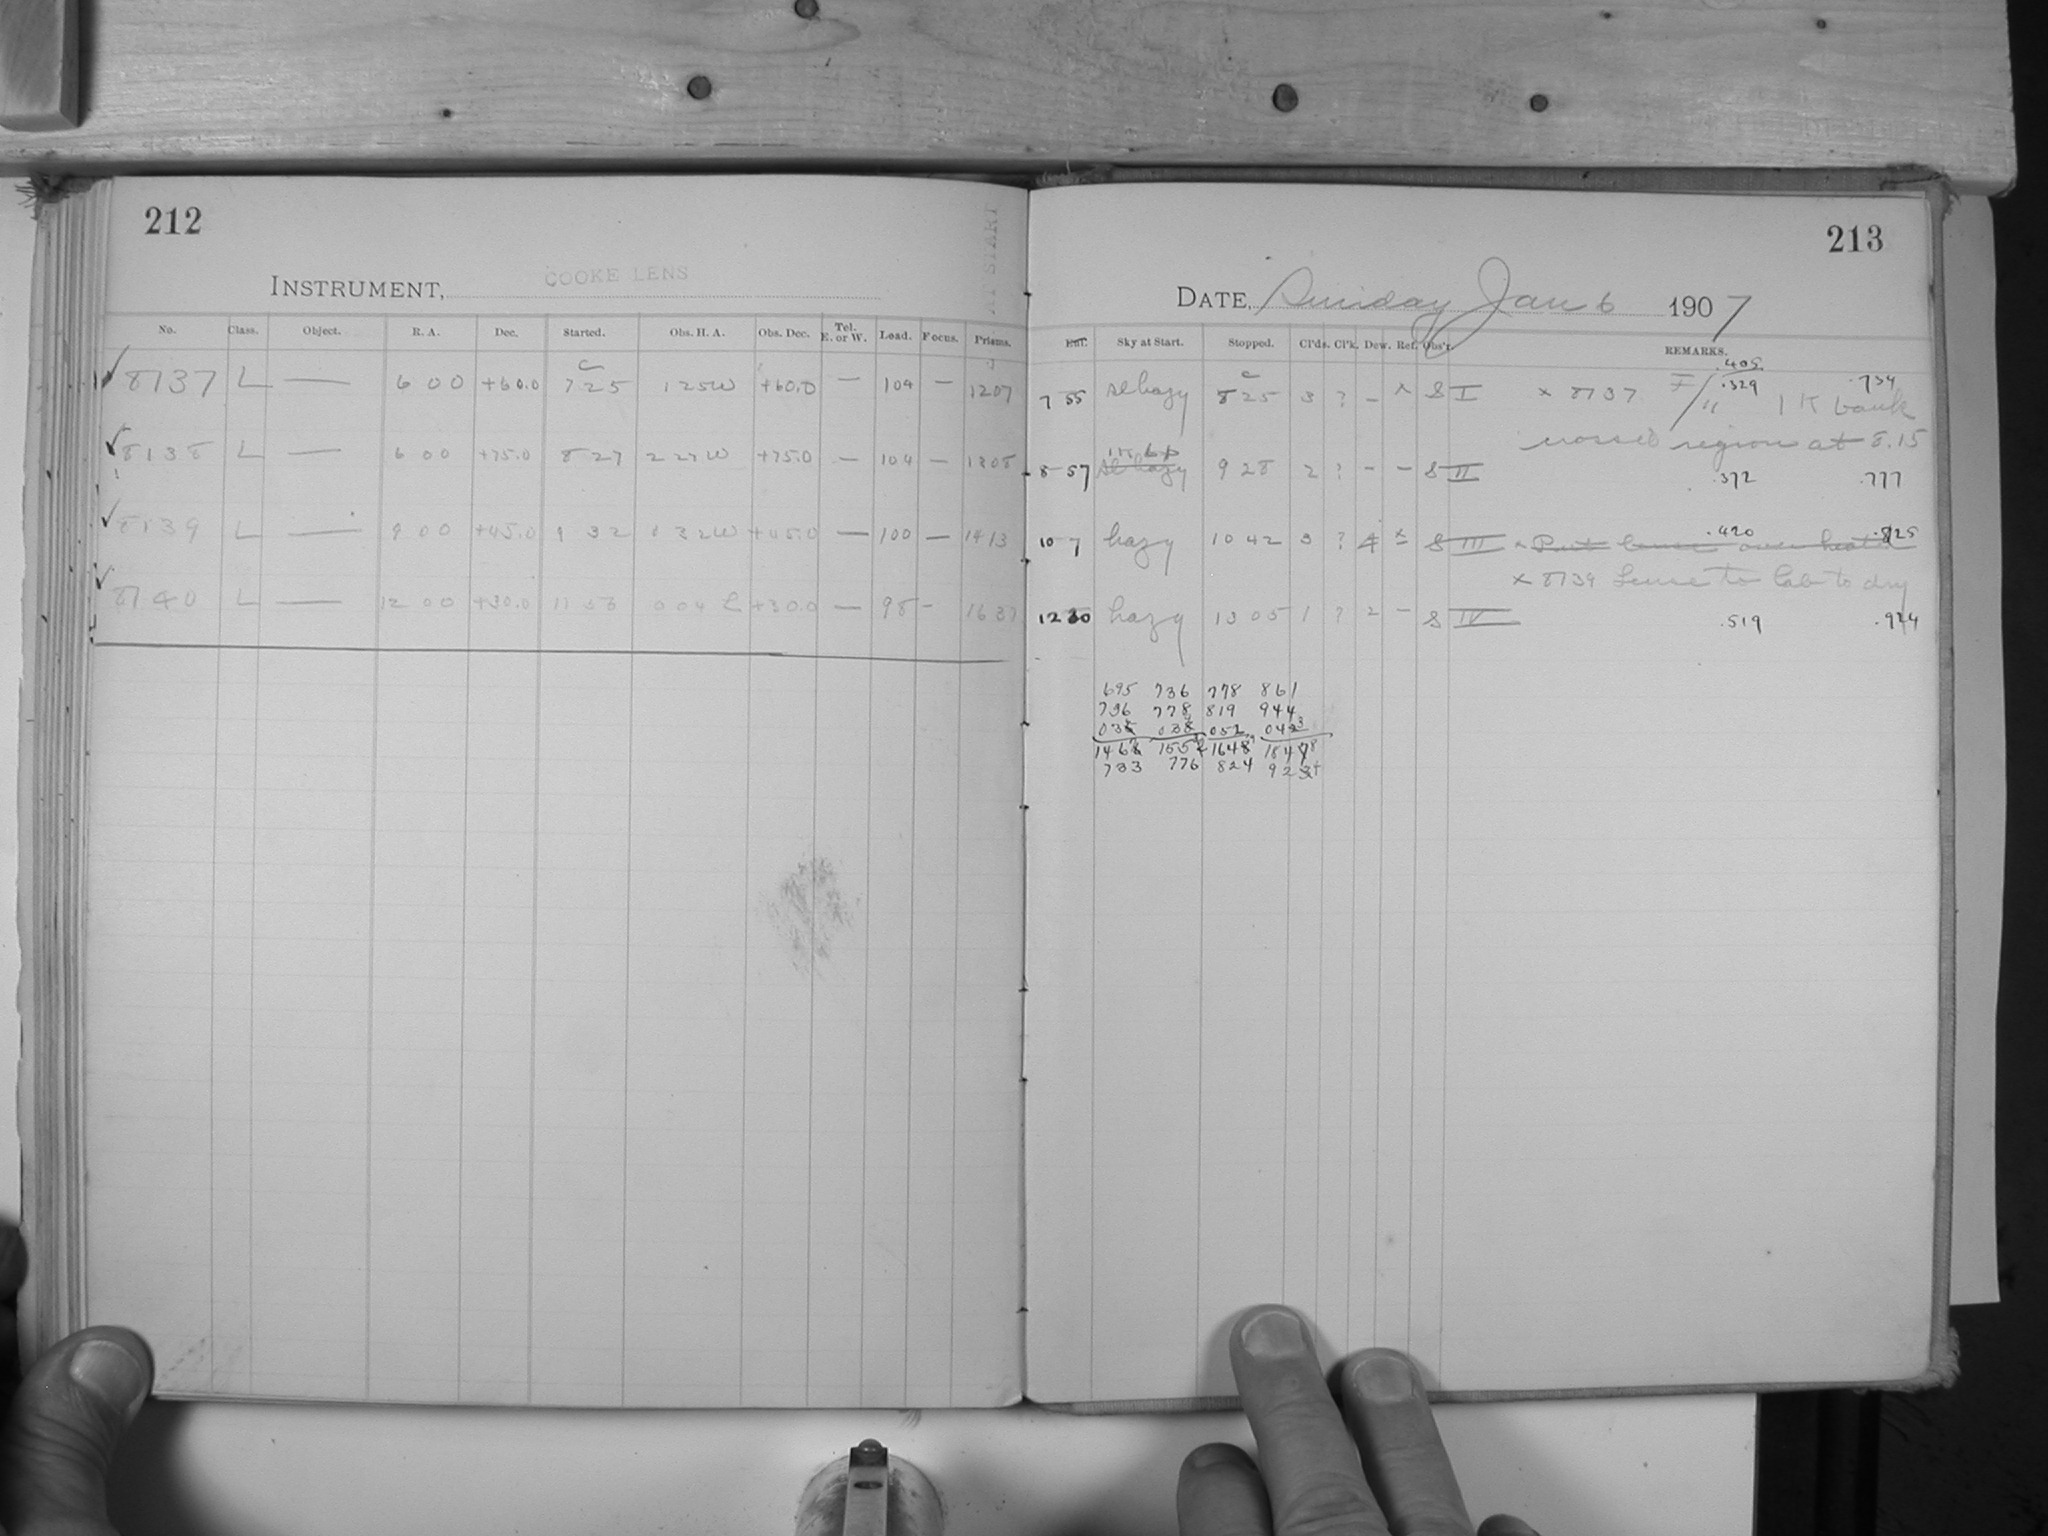 212
INSTRUMENT, COOKE LENS
No. Class. Object. R. A. Dec. Started. Obs. H. A. Obs. Dec. Tel. E. or W. Lead. Focus. Prisms.
✓ 8137 L — 6 00 +60.0 7 25 1 25 W +60.0 — 104 — 1207
✓ 8138 L — 6 00 +75.0 8 27 2 27 W +75.0 — 104 — 1308
✓ 8139 L — 9 00 +45.0 9 32 0 32 W +45.0 — 100 — 1413
✓ 8140 L — 12 00 +30.0 11 56 0 04 E +30.0 — 98 — 1637
213
DATE, Sunday Jan 6 1907
Ext. Sky at Start. Stopped. Cl'ds. Cl'k. Dew. Ref. Obs'r. REMARKS.
.405
7 55 sl hazy 8 25 3 ? – x S I x 8137 .329 .734
" 1 K bank
crossed region at 8.15
8 57 sl hazy 9 28 2 ? – – S II .372 .777
10 7 hazy 10 42 3 ? 4 x S III x Put lense over heater .420 .825
x 8139 Lense to lab to dry
12 30 hazy 13 05 1 ? 2 – S IV .519 .924
695 736 778 861
736 778 819 944
733 776 824 92